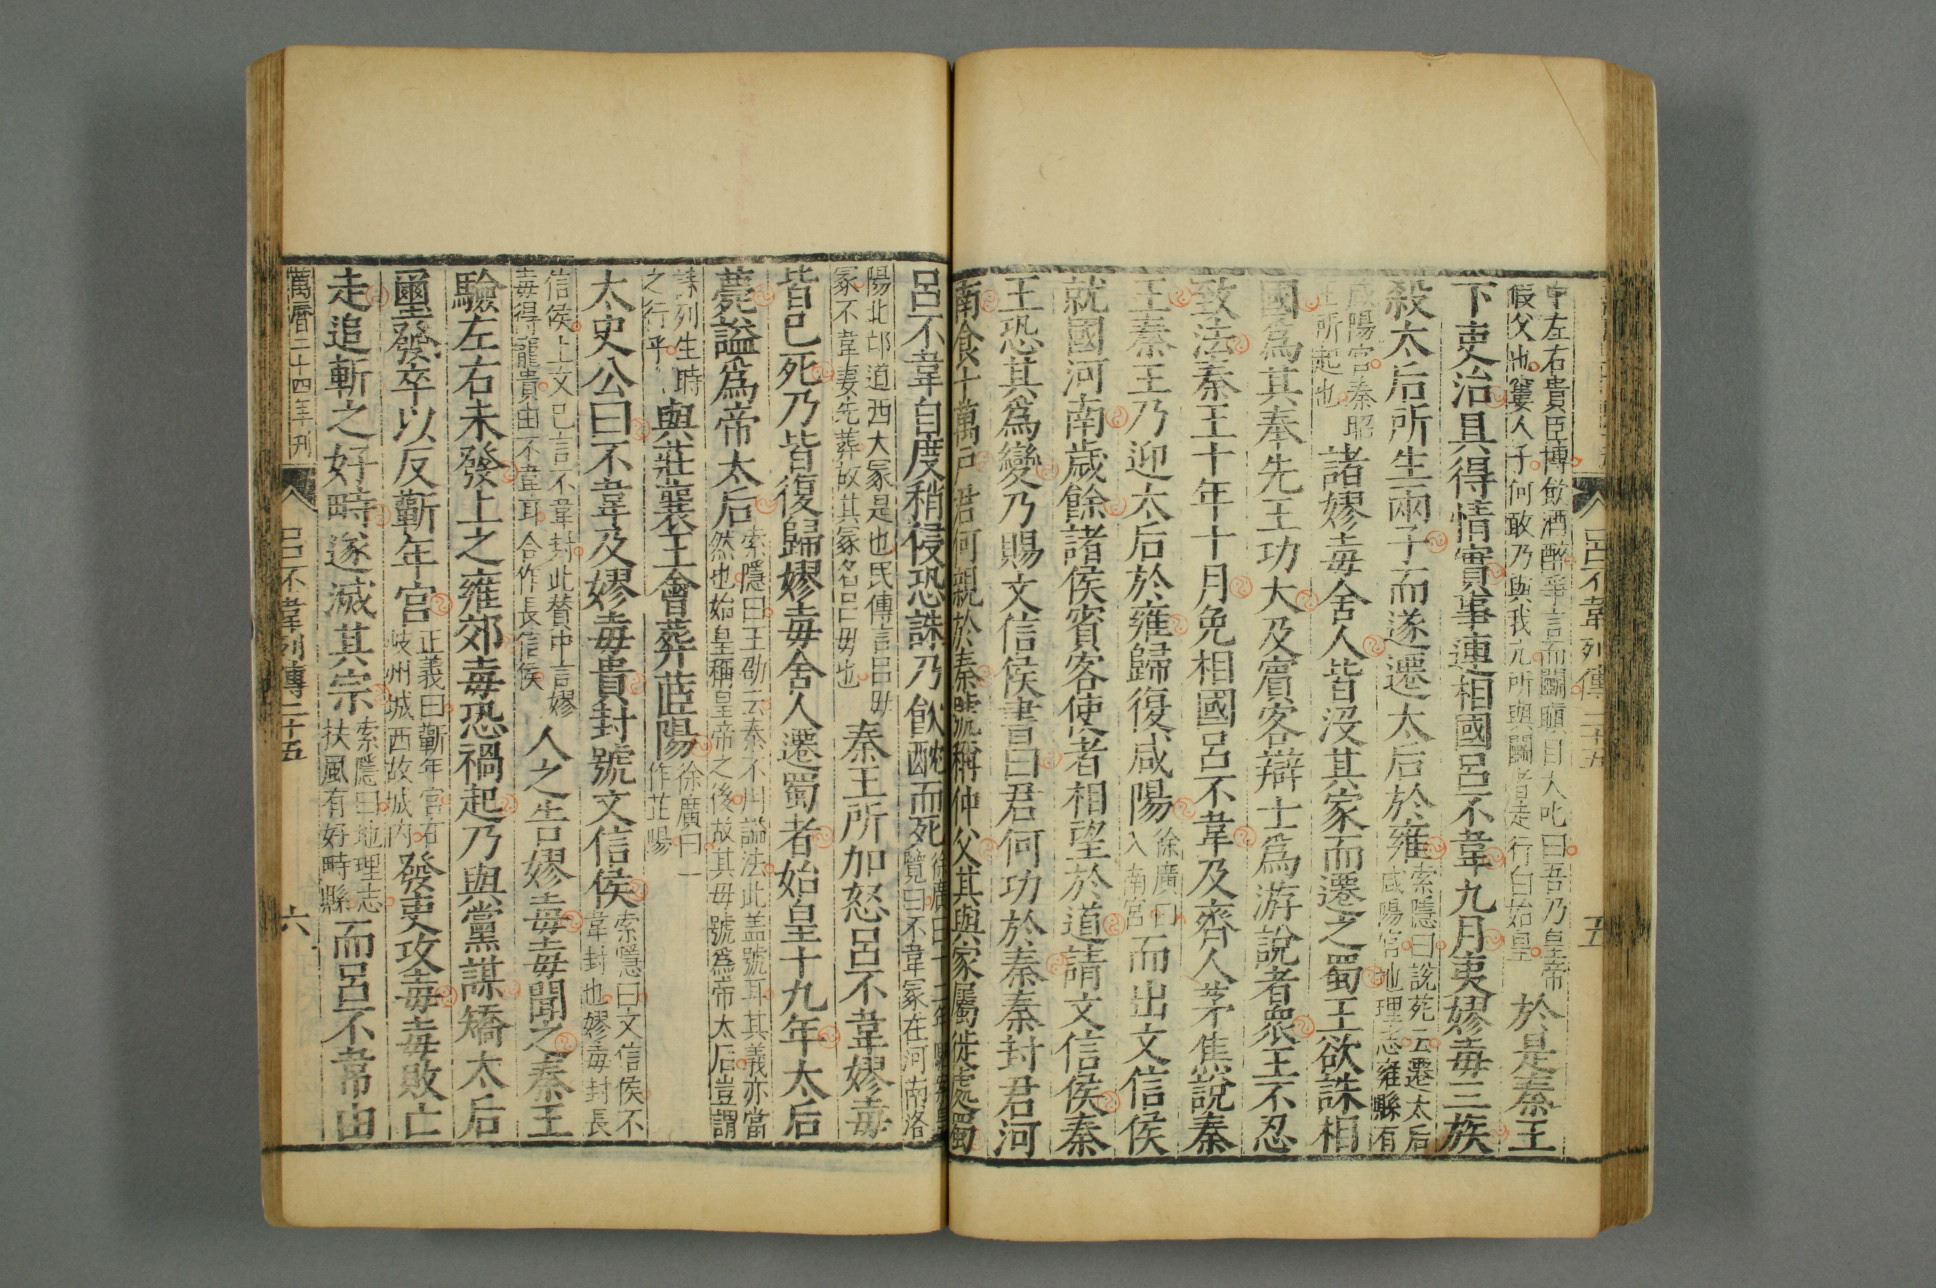 呂不韋列傳二十五
五
中左右貴臣博飲酒醉爭言而鬭瞋目大叱曰吾乃皇帝
假父也窶人子何敢乃與我亢所與鬭者走行白始皇
於是秦王
下吏治具得情實事連相國呂不韋九月夷嫪毐三族
殺太后所生兩子而遂遷太后於雍
索隱曰說苑云遷太后
咸陽宮地理志雍縣有
咸陽宮秦昭
王所起也
諸嫪毐舍人皆沒其家而遷之蜀王欲誅相
國爲其奉先王功大及賓客辯士爲游說者衆王不忍
致法秦王十年十月免相國呂不韋及齊人茅焦說秦
王秦王乃迎太后於雍歸復咸陽
徐廣曰
入南宮
而出文信侯
就國河南歲餘諸侯賓客使者相望於道請文信侯秦
王恐其爲變乃賜文信侯書曰君何功於秦秦封君河
南食十萬戶君何親於秦號稱仲父其與家屬徙處蜀
呂不韋自度稍侵恐誅乃飮酖而死
徐廣曰十二年
覽曰不韋冢在河南洛
陽北邙道西大冢是也民傳言呂毋
冢不韋妻先葬故其冢名呂毋也
秦王所加怒呂不韋嫪毐
皆已死乃皆復歸嫪毐舍人遷蜀者始皇十九年太后
薨謚爲帝太后
索隱曰王劭云秦不用謚法此盖號耳其義亦當
然也始皇稱皇帝之後故其毋號爲帝太后豈謂
誄列生時
之行乎
與莊襄王會葬茝陽
徐廣曰一
作芷陽
太史公曰不韋及嫪毐貴封號文信侯
索隱曰文信侯不
韋封也嫪毐封長
信侯上文已言不韋封此贊中言嫪
毐得寵貴由不韋耳合作長信侯
人之告嫪毐毐聞之秦王
驗左右未發上之雍郊毐恐禍起乃與黨謀矯太后
璽發卒以反蘄年宮
正義曰蘄年宮在
岐州城西故城內
發吏攻毐毐敗亡
走追斬之好畤遂滅其宗
索隱曰地理志
扶風有好畤縣
而呂不韋由
萬曆二十四年刊
呂不韋列傳二十五
六